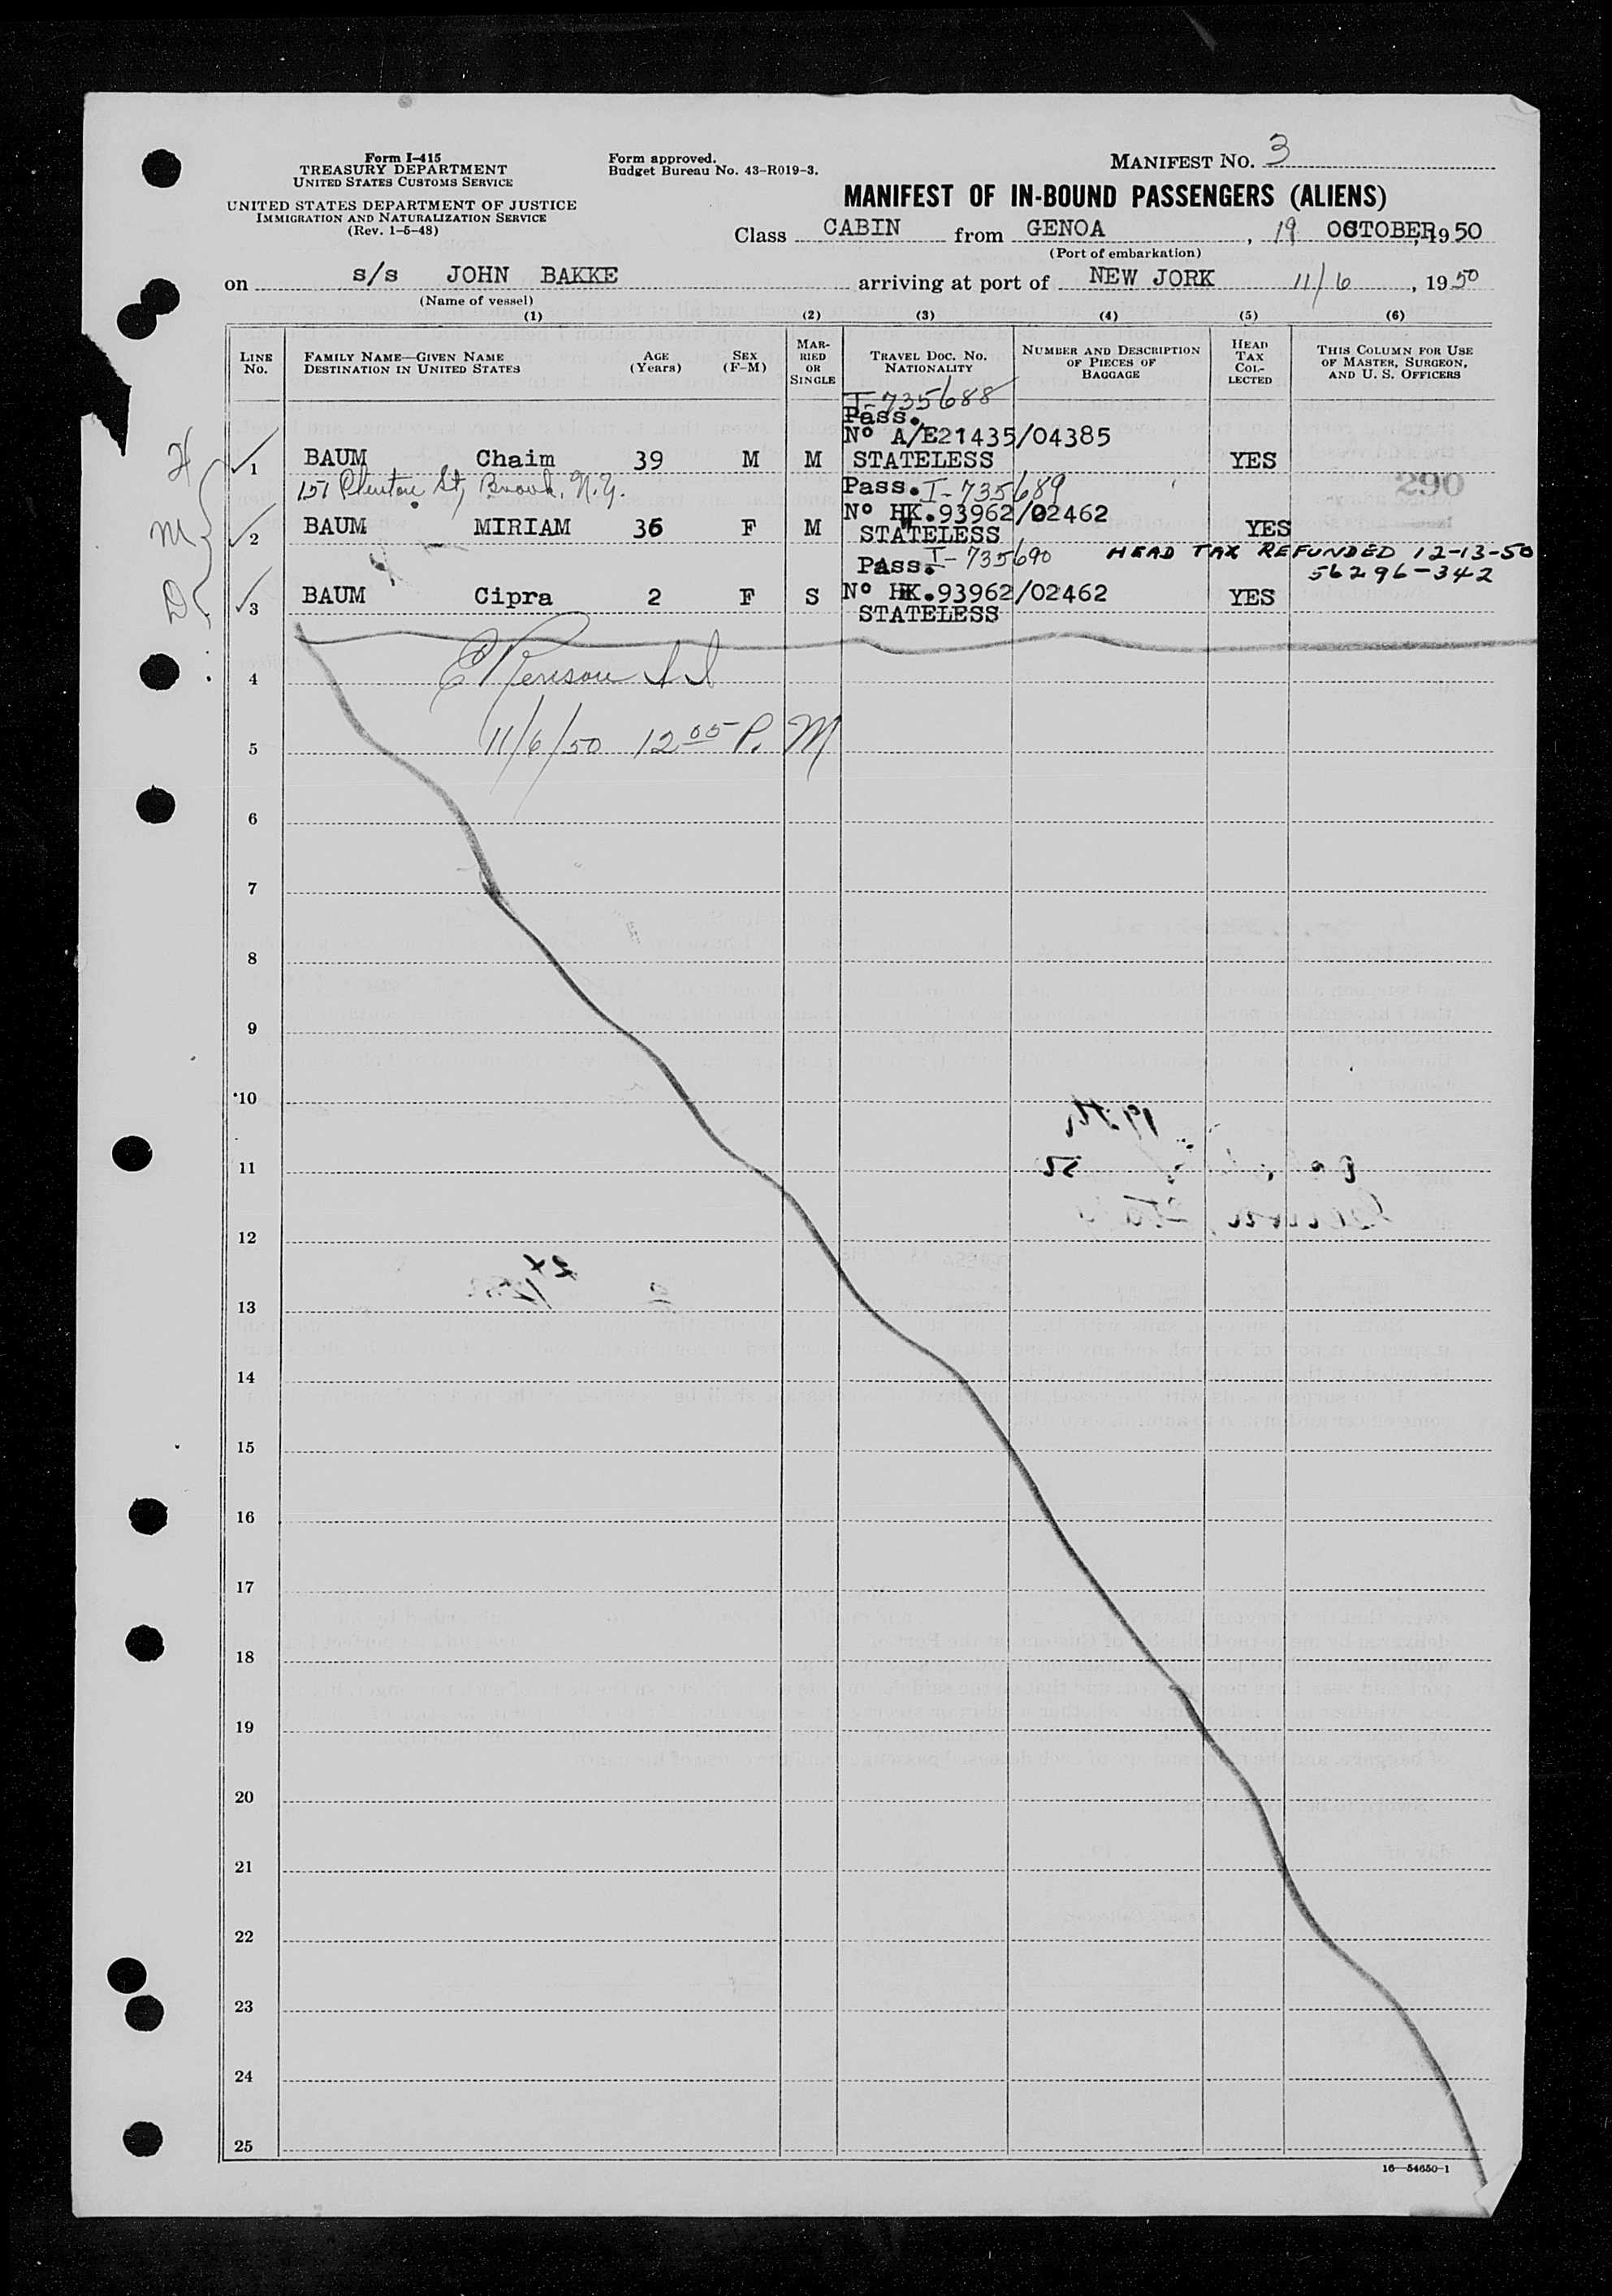 Form I-415
TREASURY DEPARTMENT
UNITED STATES CUSTOMS SERVICE
UNITED STATES DEPARTMENT OF JUSTICE
IMMIGRATION AND NATURALIZATION SERVICE
(Rev. 1-5-48)
Form approved.
Budget Bureau No. 43-R019-3.
MANIFEST NO. 3
MANIFEST OF IN-BOUND PASSENGERS (ALIENS)
Class CABIN from GENOA, 19 OCTOBER, 1950
(Port of embarkation)
on s/s JOHN BAKKE arriving at port of NEW JORK 11/6, 1950
(Name of vessel)
(1) (2) (3) (4) (5) (6)
LINE No. FAMILY NAME—GIVEN NAME DESTINATION IN UNITED STATES AGE (Years) SEX (F-M) MARRIED OR SINGLE TRAVEL DOC. NO. NATIONALITY NUMBER AND DESCRIPTION OF PIECES OF BAGGAGE HEAD TAX COLLECTED THIS COLUMN FOR USE OF MASTER, SURGEON, AND U. S. OFFICERS
I-735688
Pass.
No A/E21435/04385
H 1 BAUM Chaim 39 M M STATELESS YES
151 St, N.Y. Pass. I-735689
290
No HK.93962/02462
M 2 BAUM MIRIAM 36 F M STATELESS YES
Pass. I-735690 HEAD TAX REFUNDED 12-13-50
56296-342
D 3 BAUM Cipra 2 F S No HK.93962/02462 YES
STATELESS
4
11/6/50 12 05 P. M
5
6
7
8
9
10
11
12
13
14
15
16
17
18
19
20
21
22
23
24
25
16—54650-1